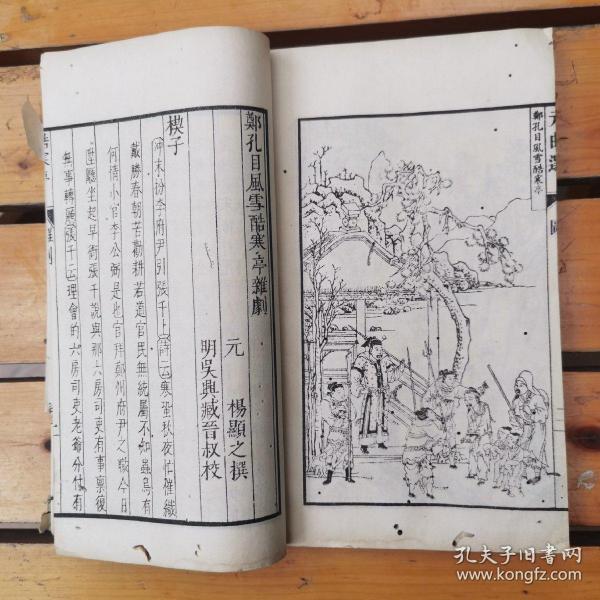 元曲選
圖
鄭孔目風雪酷寒亭
鄭孔目風雪酷寒亭雜劇
元 楊顯之撰
明吳興臧晉叔校
楔子
冲末扮李府尹引張千上詩云寒蛩秋夜忙催織
戴勝春朝苦勸耕若道官民無統屬不知蟲鳥有
何情小官李公弼是也官拜鄭州府尹之職今日
陞廳坐起早衙張千說與那六房司吏有事禀復
無事轉廳張千云理會的六房司吏老爺分付有
酷寒亭
雜劇
孔夫子旧书网
www.kongfz.com